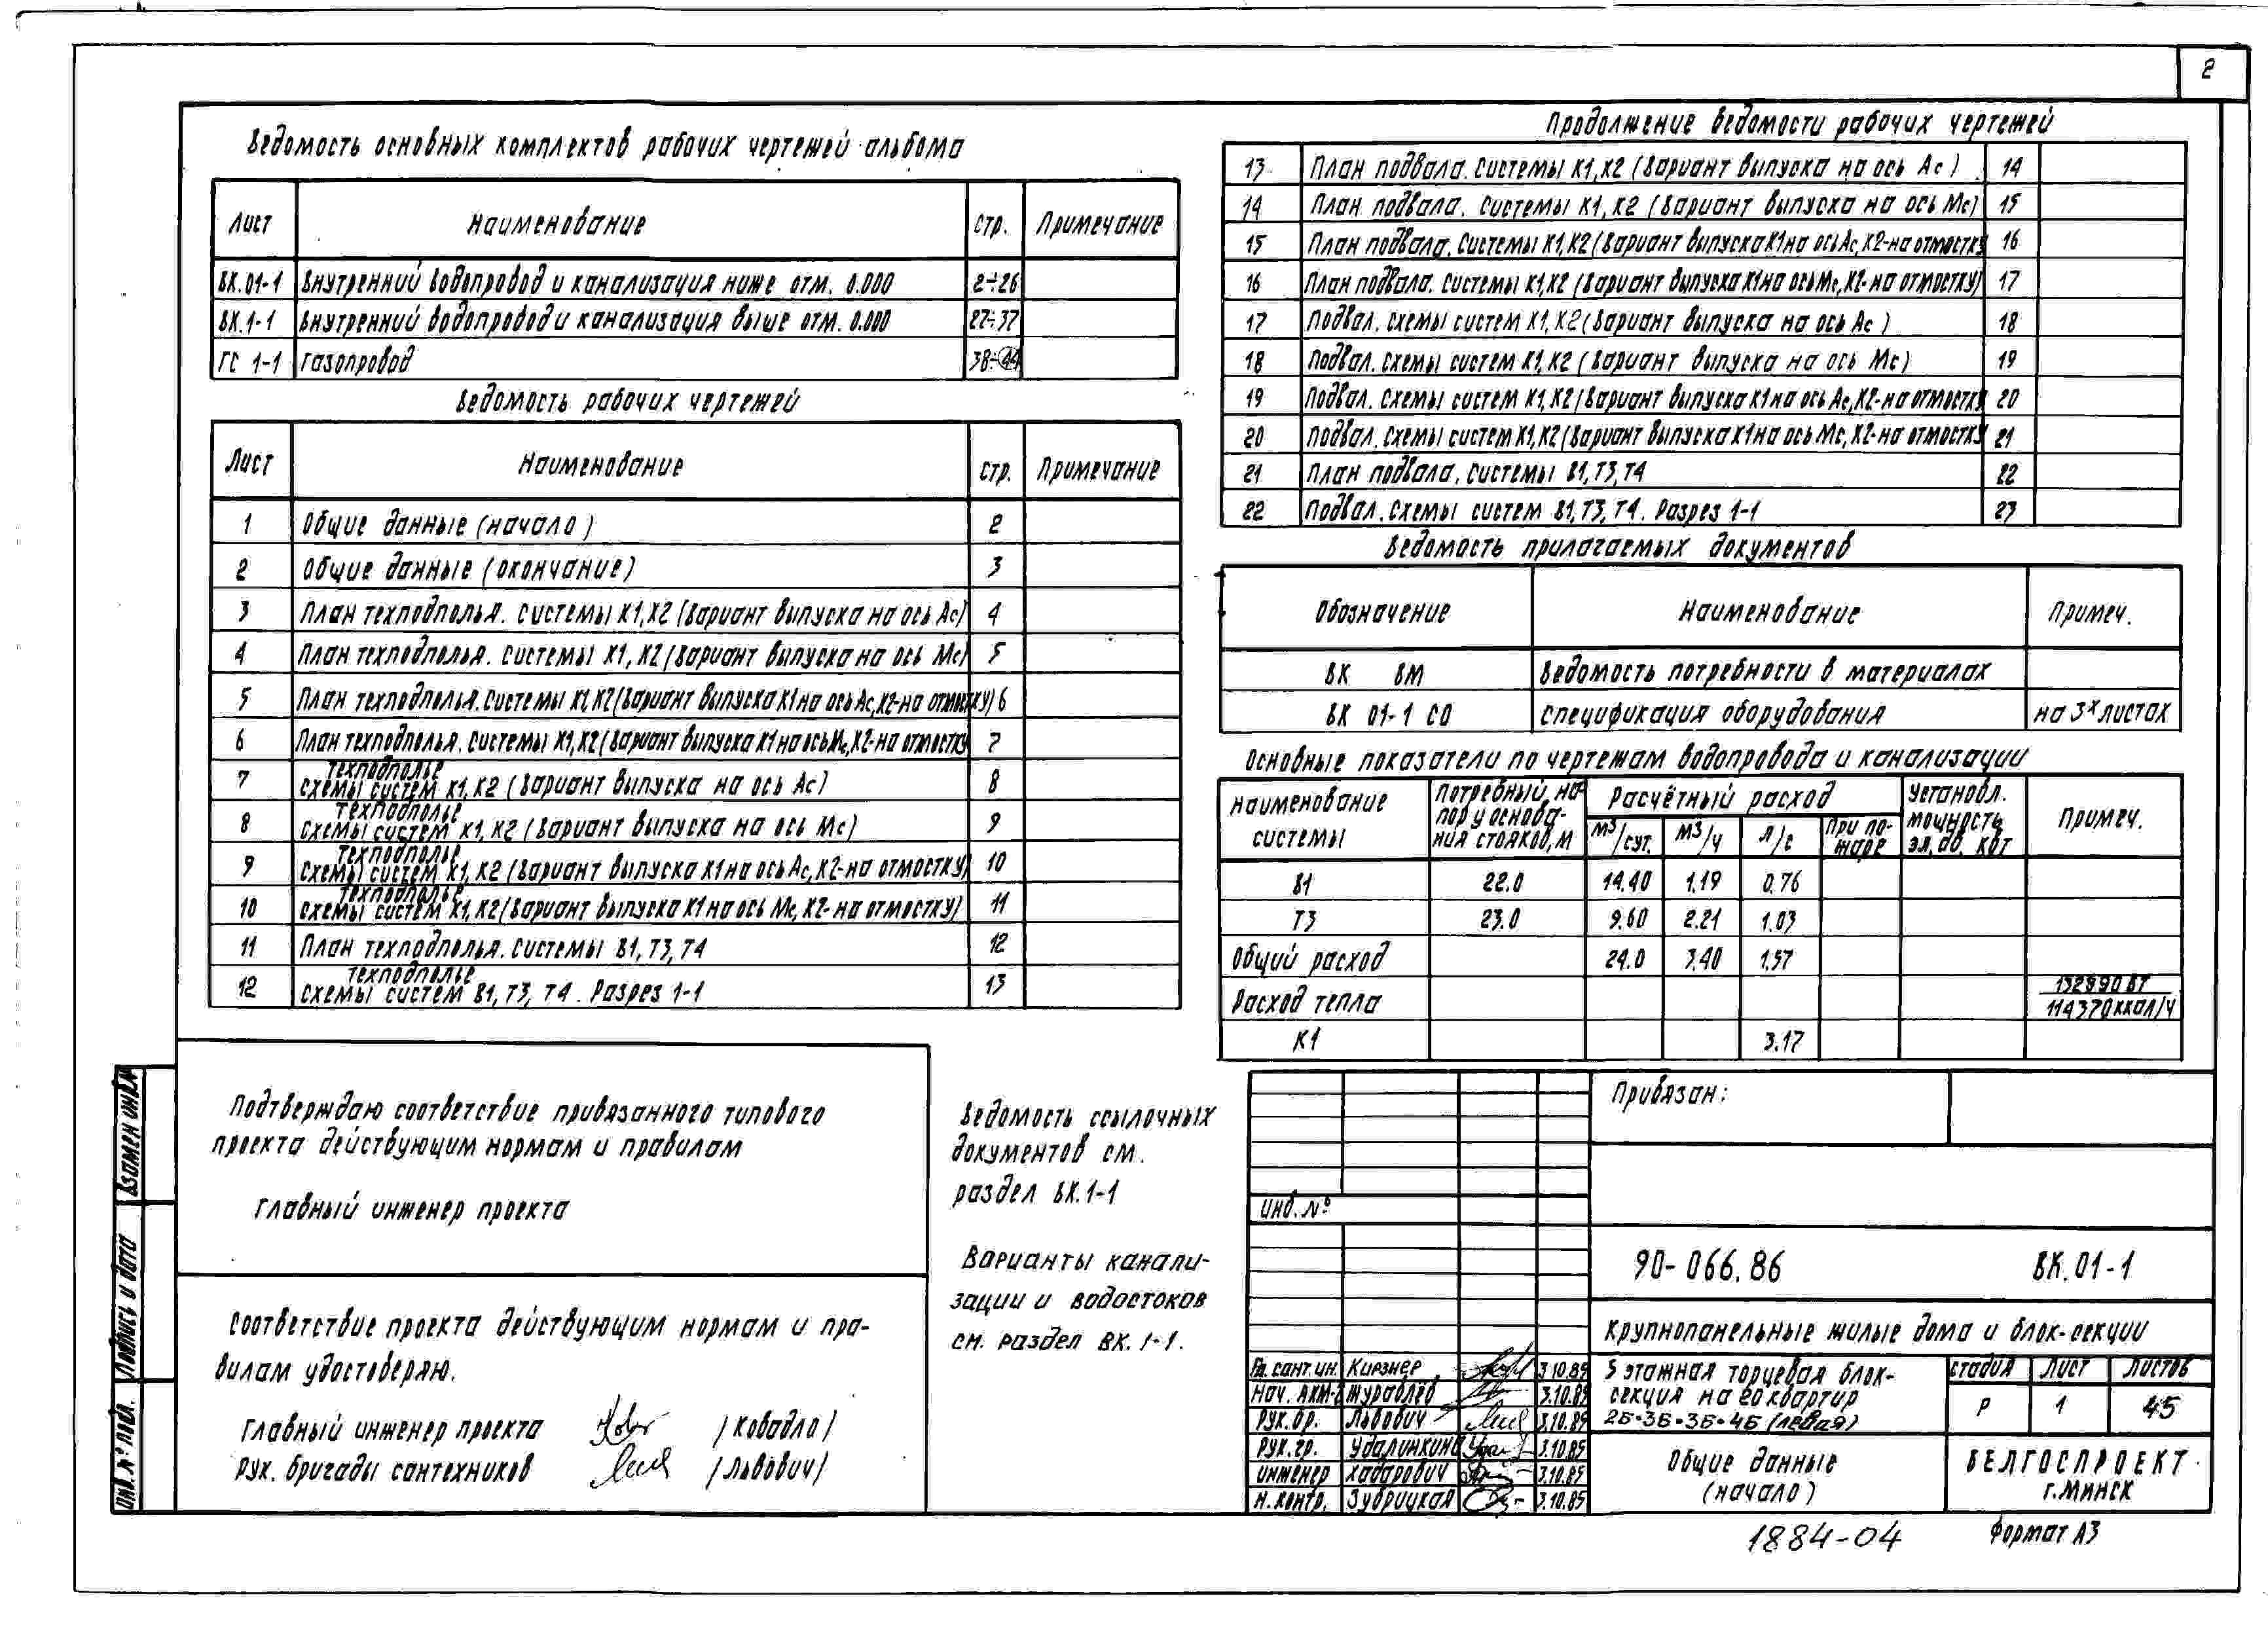 2
Ведомость основных комплектов рабочих чертежей альбома
Лист Наименование Стр. Примечание
ВК.01-1 Внутренний водопровод и канализация ниже отм. 0.000 2÷26
ВК.1-1 Внутренний водопровод и канализация выше отм. 0.000 27÷37
ГС 1-1 Газопровод 38÷44
Ведомость рабочих чертежей
Лист Наименование Стр. Примечание
1 Общие данные (начало) 2
2 Общие данные (окончание) 3
3 План техподполья. Системы К1,К2 (Вариант выпуска на ось Ас) 4
4 План техподполья. Системы К1, К2 (Вариант выпуска на ось Мс) 5
5 План техподполья. Системы К1,К2 (Вариант выпуска К1 на ось Ас, К2-на отмостку) 6
6 План техподполья. Системы К1,К2 (Вариант выпуска К1 на ось Мс, К2-на отмостку 7
7 Техподполье Схемы систем К1, К2 (Вариант выпуска на ось Ас) 8
8 Техподполье Схемы систем К1, К2 (Вариант выпуска на ось Мс) 9
9 Техподполье Схемы систем К1, К2 (Вариант выпуска К1 на ось Ас, К2-на отмостку) 10
10 Техподполье Схемы систем К1, К2 (Вариант выпуска К1 на ось Мс, К2-на отмостку) 11
11 План техподполья. Системы В1, Т3, Т4 12
12 Техподполье Схемы систем В1, Т3, Т4. Разрез 1-1 13
Продолжение ведомости рабочих чертежей
13 План подвала. Системы К1,К2 (Вариант выпуска на ось Ас) 14
14 План подвала. Системы К1, К2 (Вариант выпуска на ось Мс) 15
15 План подвала. Системы К1, К2 (Вариант выпуска К1 на ось Ас, К2-на отмостку 16
16 План подвала. Системы К1,К2 (Вариант выпуска К1 на ось Мс, К2-на отмостку) 17
17 Подвал. Схемы систем К1, К2 (Вариант выпуска на ось Ас) 18
18 Подвал. Схемы систем К1, К2 (Вариант выпуска на ось Мс) 19
19 Подвал. Схемы систем К1, К2 (Вариант выпуска К1 на ось Ас, К2-на отмостку 20
20 Подвал. Схемы систем К1, К2 (Вариант выпуска К1 на ось Мс, К2-на отмостку 21
21 План подвала. Системы В1, Т3, Т4 22
22 Подвал. Схемы систем В1, Т3, Т4. Разрез 1-1 23
Ведомость прилагаемых документов
Обозначение Наименование Примеч.
ВК ВМ Ведомость потребности в материалах
ВК 01-1 СО Спецификация оборудования на 3х листах
Основные показатели по чертежам водопровода и канализации
Наименование системы Потребный напор у основания стояков, м Расчётный расход Установл. мощность эл. дв. кВт Примеч.
м3/сут. м3/ч л/с При пожаре
В1 22.0 14.40 1.19 0.76
Т3 23.0 9.60 2.21 1.03
Общий расход 24.0 3.40 1.57
Расход тепла 132890 Вт
114370 ккал/ч
К1 3.17
Подтверждаю соответствие привязанного типового
проекта действующим нормам и правилам
Главный инженер проекта
Соответствие проекта действующим нормам и пра-
вилам удостоверяю.
Главный инженер проекта /Ковадло/
Рук. бригады сантехников /Львович/
Ведомость ссылочных
документов см.
раздел ВК.1-1
Варианты канали-
зации и водостоков
см. раздел ВК. 1-1.
Взамен инв.№
Подпись и дата
Инв. № подл.
Привязан:
Инв. №
90-066.86 ВК.01-1
Крупнопанельные жилые дома и блок-секции
Гл. сант.ин. Кирзнер 3.10.85
Нач. АКМ-2 Журавлёв 3.10.85
Рук. бр. Львович 3.10.85
Рук. гр. Удалинкина 3.10.85
Инженер Хадарович 3.10.85
Н. контр. Зубрицкая 3.10.85
5 этажная торцевая блок-
секция на 20 квартир
2Б-3Б-3Б-4Б (левая)
Стадия Лист Листов
Р 1 45
Общие данные
(начало)
БЕЛГОСПРОЕКТ
г. Минск
1884-04
Формат А3